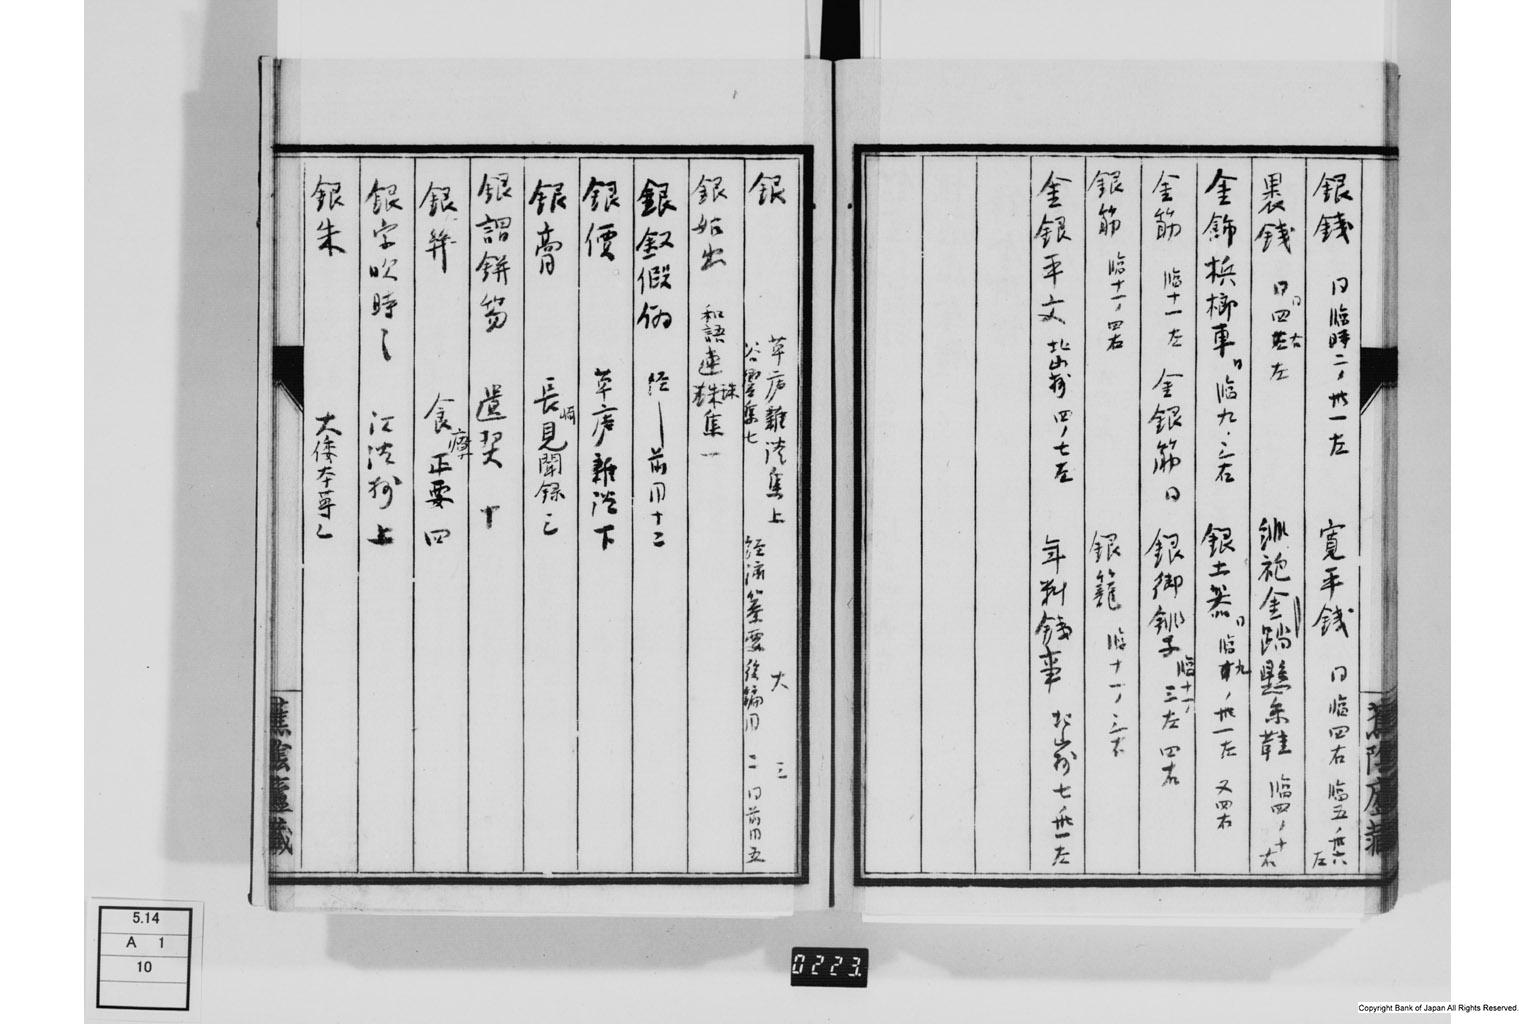 銀錢 同臨時二ノ卅一左 寛平錢 同臨四右 臨五ノ卅六左
裹錢 同四左 同右 金 懸糸鞋 臨四ノ十右
金飾檳榔車 同臨九ノ三右 銀土器 同臨九ノ卅一左 又四右
金筋 臨十一左 金銀筋 同 銀御銚子 臨十一ノ三左 四右
銀筋 臨十一ノ四右 銀籠 臨十一ノ三右
金銀平文 北山抄四ノ七左 年料錢事 北山抄七ノ卅一左
銀 草庐雜談集上 大 三
谷響集七 經濟纂要後編 二 同前 五
銀 出 和語連珠集一
銀釵假 前 十二
銀價 草庐雜談下
銀膏 長崎見聞録三
銀謂餅笏 遺契十
銀 食療正要四
銀字吹時 江談抄上
銀朱 大倭本草
蕉陰廬藏
蕉陰廬藏
5.14
A 1
10
0223
Copyright Bank of Japan All Rights Reserved.